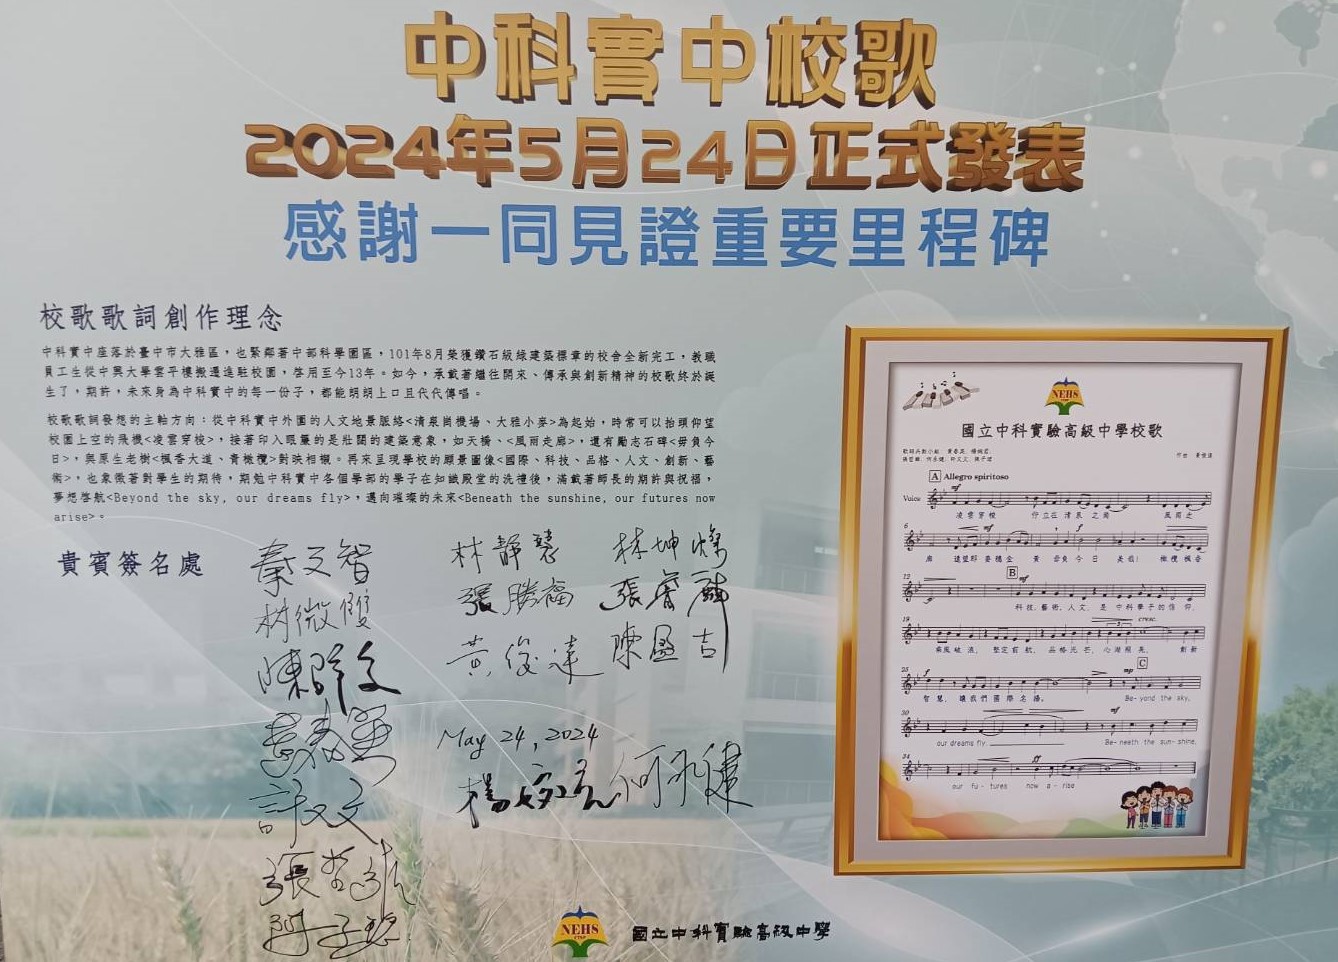 中科實中校歌
2024年5月24日正式發表
感謝一同見證重要里程碑
校歌歌詞創作理念
中科實中座落於臺中市大雅區，也緊鄰著中部科學園區，101年8月榮獲鑽石級綠建築標章的校舍全新完工，教職
員工生從中興大學雲平樓搬遷進駐校園，啓用至今13年。如今，承載著繼往開來、傳承與創新精神的校歌終於誕
生了，期許，未來身為中科實中的每一份子，都能朗朗上口且代代傳唱。
校歌歌詞發想的主軸方向：從中科實中外圍的人文地景脈絡<清泉崗機場、大雅小麥>為起始，時常可以抬頭仰望
校園上空的飛機<凌雲穿梭>，接著印入眼簾的是壯闊的建築意象，如天橋、<風雨走廊>，還有勵志石碑<毋負今
日>，與原生老樹<楓香大道、青橄欖>對映相襯。再來呈現學校的願景圖像<國際、科技、品格、人文、創新、藝
術>，也象徵著對學生的期待，期勉中科實中各個學部的學子在知識殿堂的洗禮後，滿載著師長的期許與祝福，
夢想啓航<Beyond the sky, our dreams fly>，邁向璀璨的未來<Beneath the sunshine, our futures now
arise>。
貴賓簽名處
秦文智
林靜慧
林坤燦
張勝福
張睿麟
黃俊達
陳盈吉
May 24, 2024
NEHS
國立中科實驗高級中學校歌
A Allegro spiritoso
Voice
mf
凌雲穿梭 佇立在清泉之崗 風雨走
6
mf
f
廊 遠望那麥穗金黃 毋負今日 是我! 橄欖楓香
12
B
mf
科技, 藝術, 人文, 是 中科學子的信仰,
19
cresc.
乘風破浪, 堅定前航, 品格光芒, 心湖照亮, 創新
25
f
mp
C
智慧, 讓我們國際名揚。 Be-yond the sky,
30
mf
our dreams fly Be-neath the sun-shine,
34
ff
our fu-tures now a-rise
NEHS
國立中科實驗高級中學